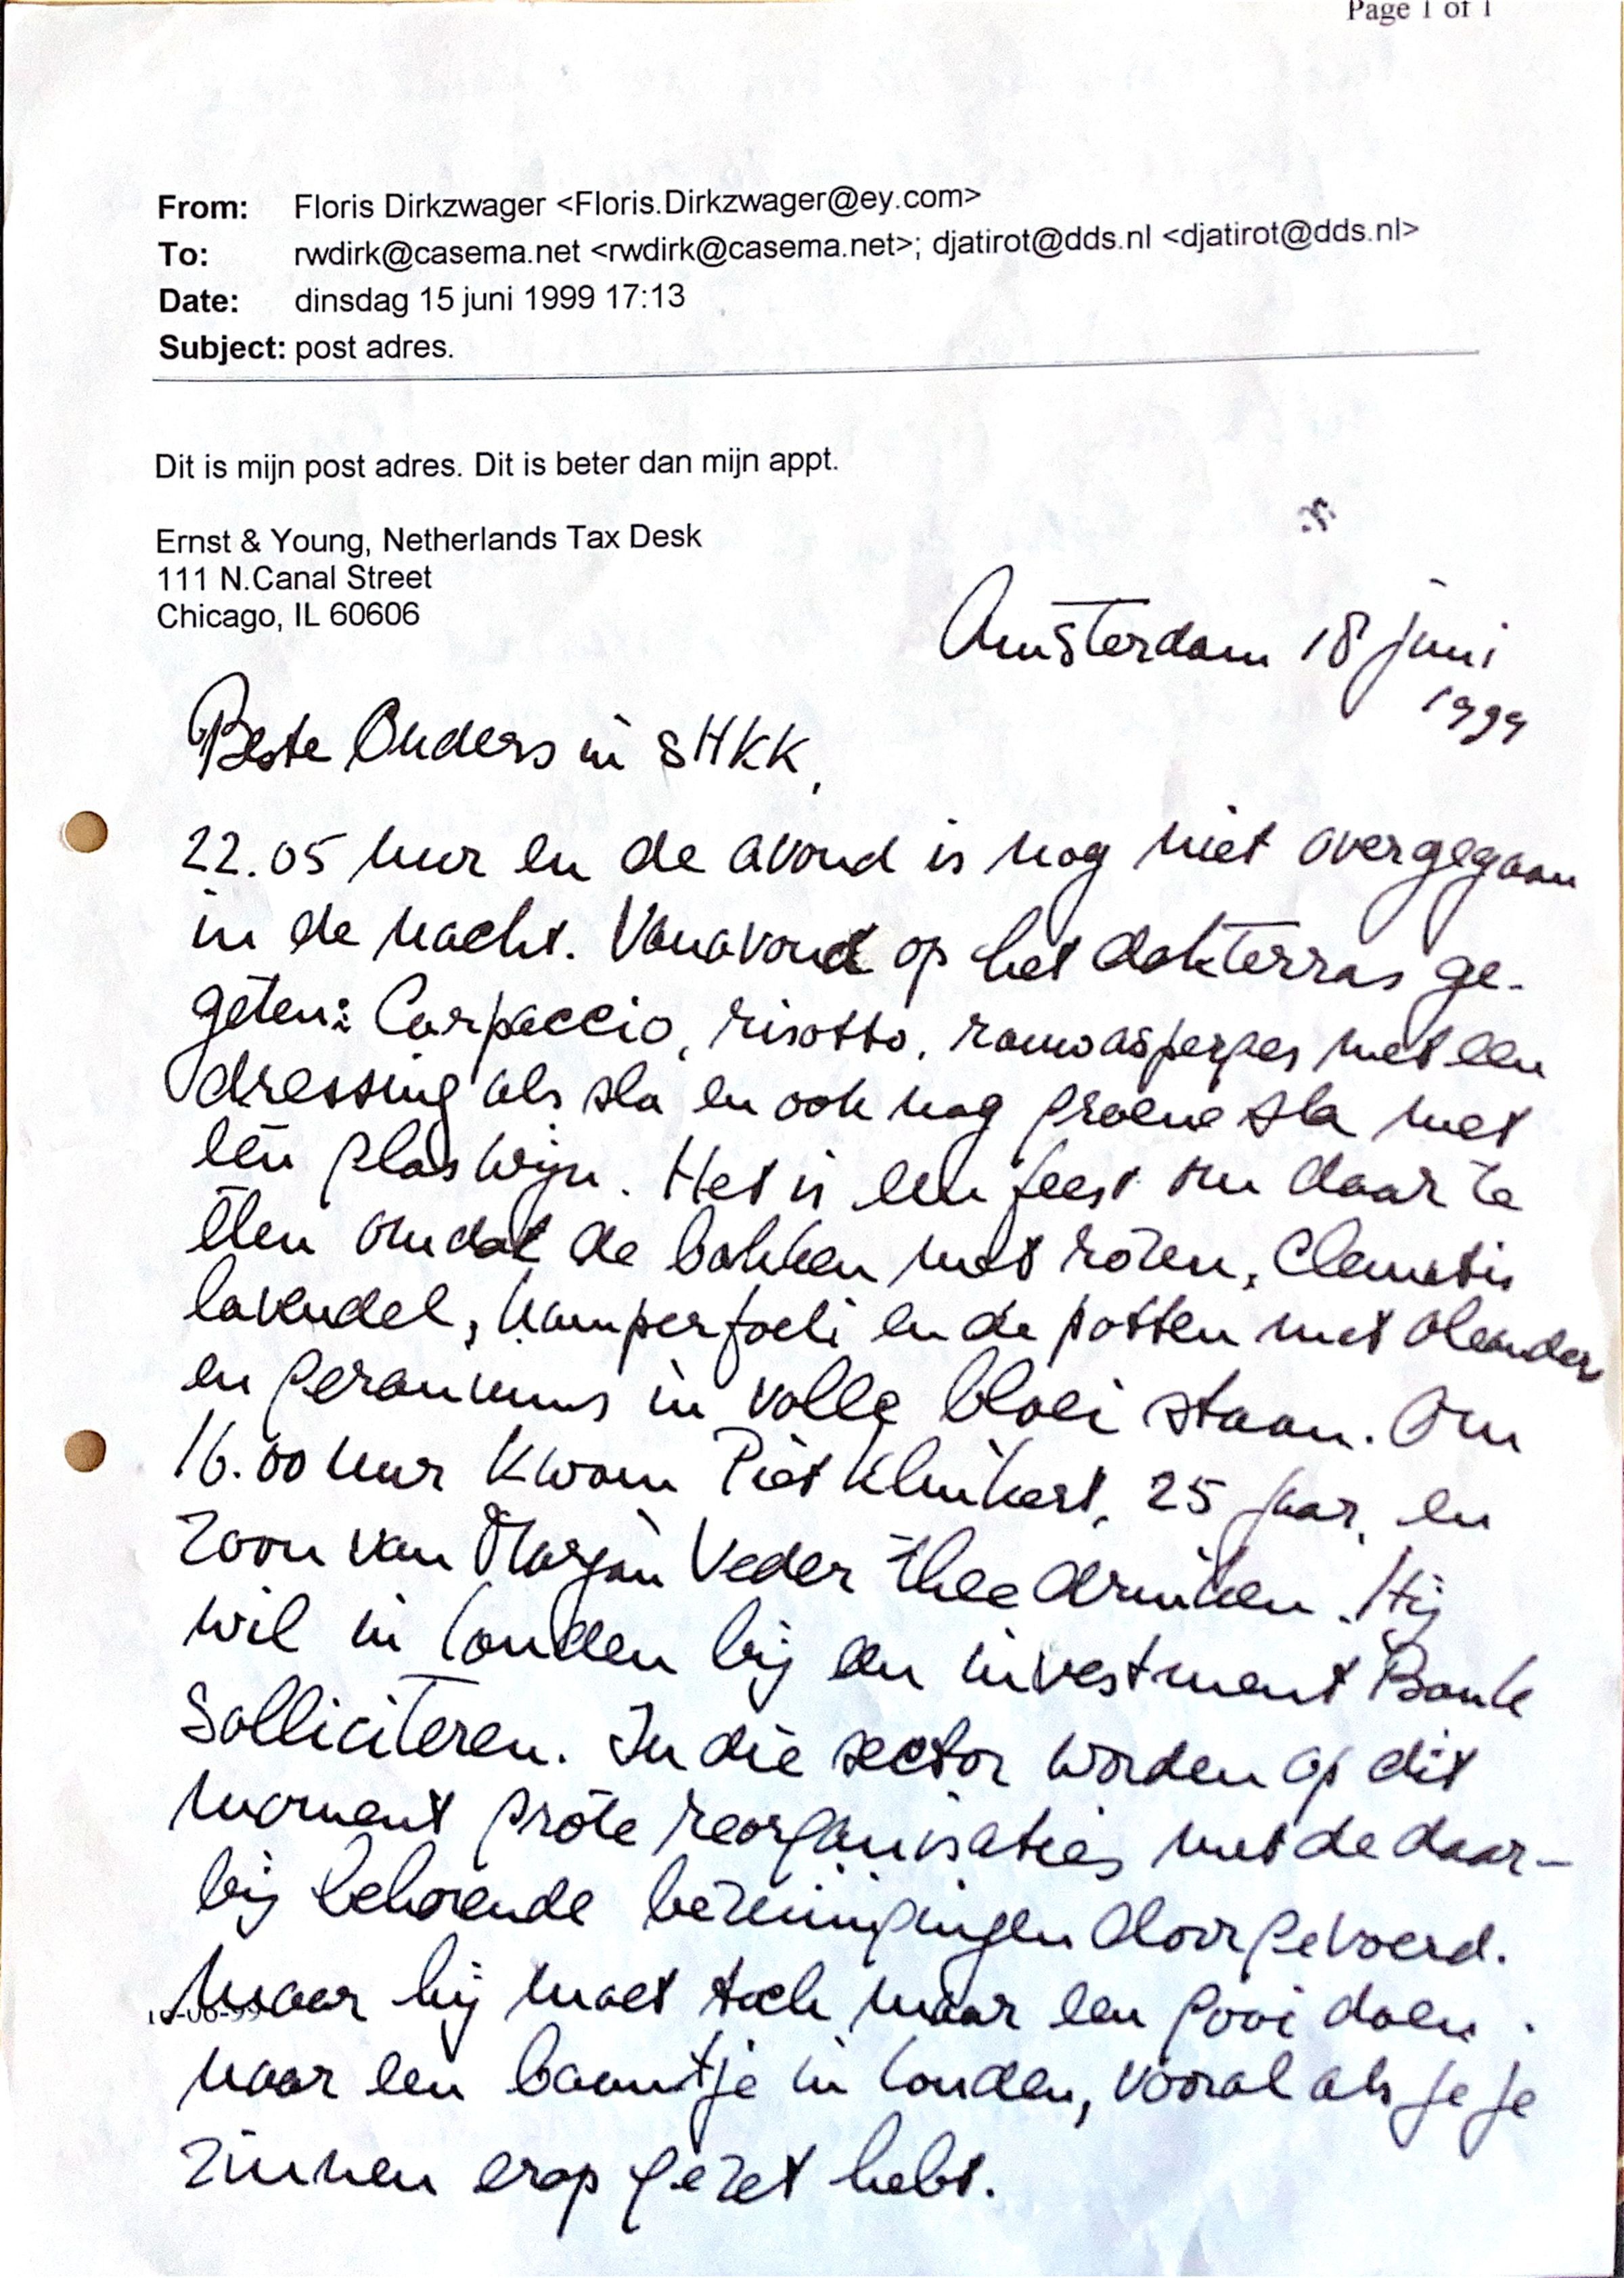 Page 1 of 1
From: Floris Dirkzwager <Floris.Dirkzwager@ey.com>
To: rwdirk@casema.net <rwdirk@casema.net>; djatirot@dds.nl <djatirot@dds.nl>
Date: dinsdag 15 juni 1999 17:13
Subject: post adres.
Dit is mijn post adres. Dit is beter dan mijn appt.
Ernst & Young, Netherlands Tax Desk
111 N.Canal Street
Chicago, IL 60606
Amsterdam 18 juni
1999
Beste Ouders in SHKK,
22.05 uur en de avond is nog niet overgegaan
in de nacht. Vanavond op het dakterras ge-
geten: Carpaccio, risotto, rauwe asperges met een
dressing als sla en ook nog groene sla met
één glas wijn. Het is een feest om daar te
eten omdat de bakken met rozen, Clematis
lavendel, kamperfoeli en de potten met oleander
en geraniums in volle bloei staan. Om
16.00 uur kwam Piet Kluikert, 25 jaar, en
zoon van Marjan Veder thee drinken. Hij
wil in Londen bij een investment Bank
Solliciteren. In die sector worden op dit
moment grote reorganisaties met de daar-
bij behorende bezuinigingen doorgevoerd.
Maar hij moet toch maar een gooi doen
naar een baantje in Londen, vooral als je je
zinnen erop gezet hebt.